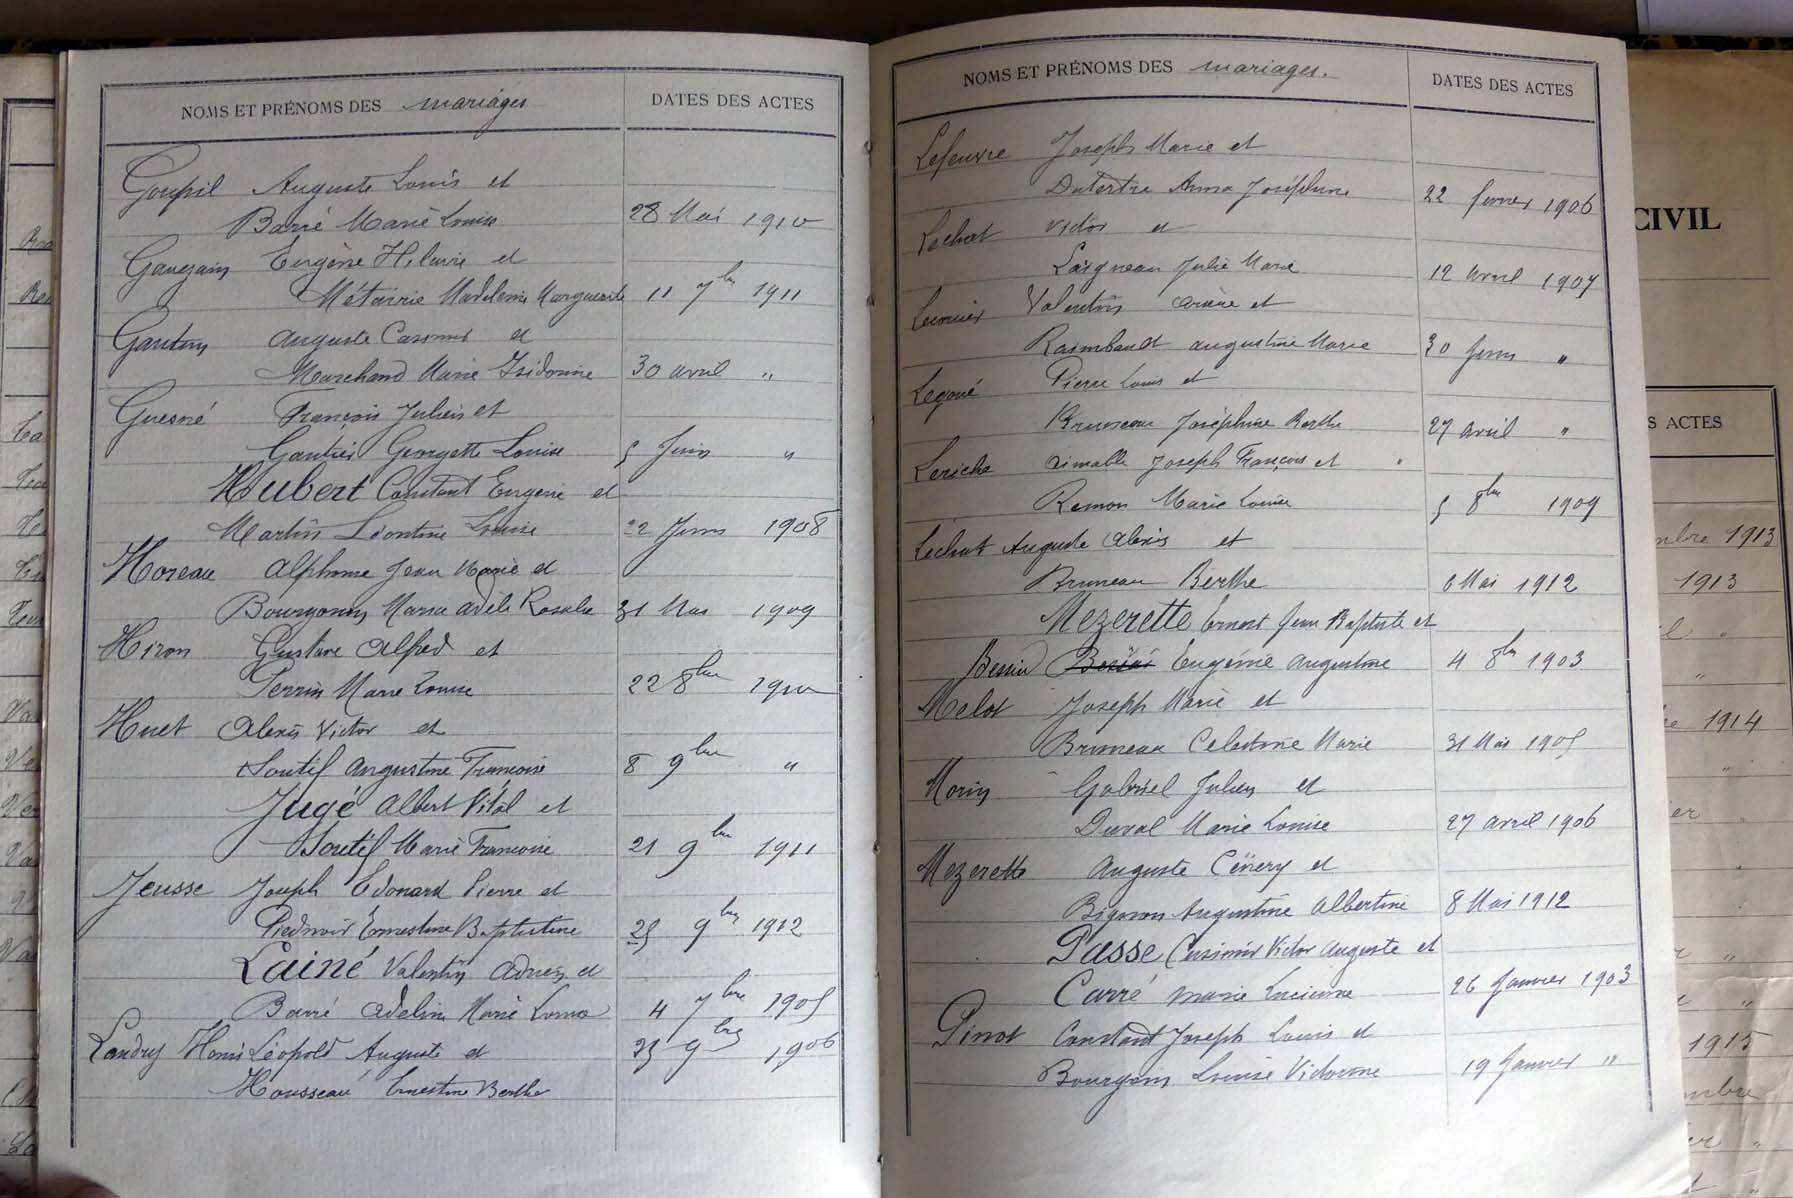 NOMS ET PRÉNOMS DES mariages
DATES DES ACTES
Goupil Auguste Louis et
Barré Marie Louise 28 Mai 1910
Gauquin Eugène Hilaire et
Métairie Madeleine Marguerite 11 7bre 1911
Gautun Auguste Casimir et
Marchand Marie Isidorine 30 avril "
Guesné François Julien et
Gautier Georgette Louise 5 Juin "
Hubert Constant Eugène et
Martin Léontine Louise 22 Juin 1908
Horeau Alphonse Jean Marie et
Bourgoin Maria Adèle Rosalie 31 Mai 1909
Hiron Gustave Alfred et
Perrin Marie Louise 22 8bre 1910
Huet Alexis Victor et
Soutif Augustine Françoise 8 9bre "
Jugé Albert Vital et
Soutif Marie Françoise 21 9bre 1911
Jeusse Joseph Edouard Pierre et
Piednoir Ernestine Baptistine 25 9bre 1912
Lainé Valentin Adrien et
Barré Adeline Marie Louise 4 7bre 1905
Landry Henri Léopold Auguste et 25 9bre 1906
Housseau Ernestine Berthe
NOMS ET PRÉNOMS DES mariages.
DATES DES ACTES
Lefeuvre Joseph Marie et
Dutertre Anna Joséphine 22 février 1906
Lechat Victor et
Laigneau Julie Marie 12 avril 1907
Valentin et
Raimbault Augustine Marie 30 Juin "
Legoué Pierre Louis et
Bruneau Joséphine Berthe 27 avril "
Leriche Aimable Joseph François et "
Ramon Marie Louise 5 8bre 1909
Lechat Auguste Alexis et
Bruneau Berthe 6 Mai 1912
Mezerette Ernest Jean Baptiste et
Bessin Eugénie Augustine 4 8bre 1903
Melot Joseph Marie et
Bruneau Celestine Marie 31 Mai 1905
Morin Gabriel Julien et
Duval Marie Louise 27 avril 1906
Mezerette Auguste Cénery et
Bignon Augustine Albertine 8 Mai 1912
Passe Casimir Victor Auguste et
Carré Marie Lucienne 26 Janvier 1903
Pinot Constant Joseph Louis et
Bourgoin Louise Victorine 19 Janvier "
CIVIL
S ACTES
mbre 1913
1913
"
"
re 1914
"
ier "
"
"
"
1915
mbre
"